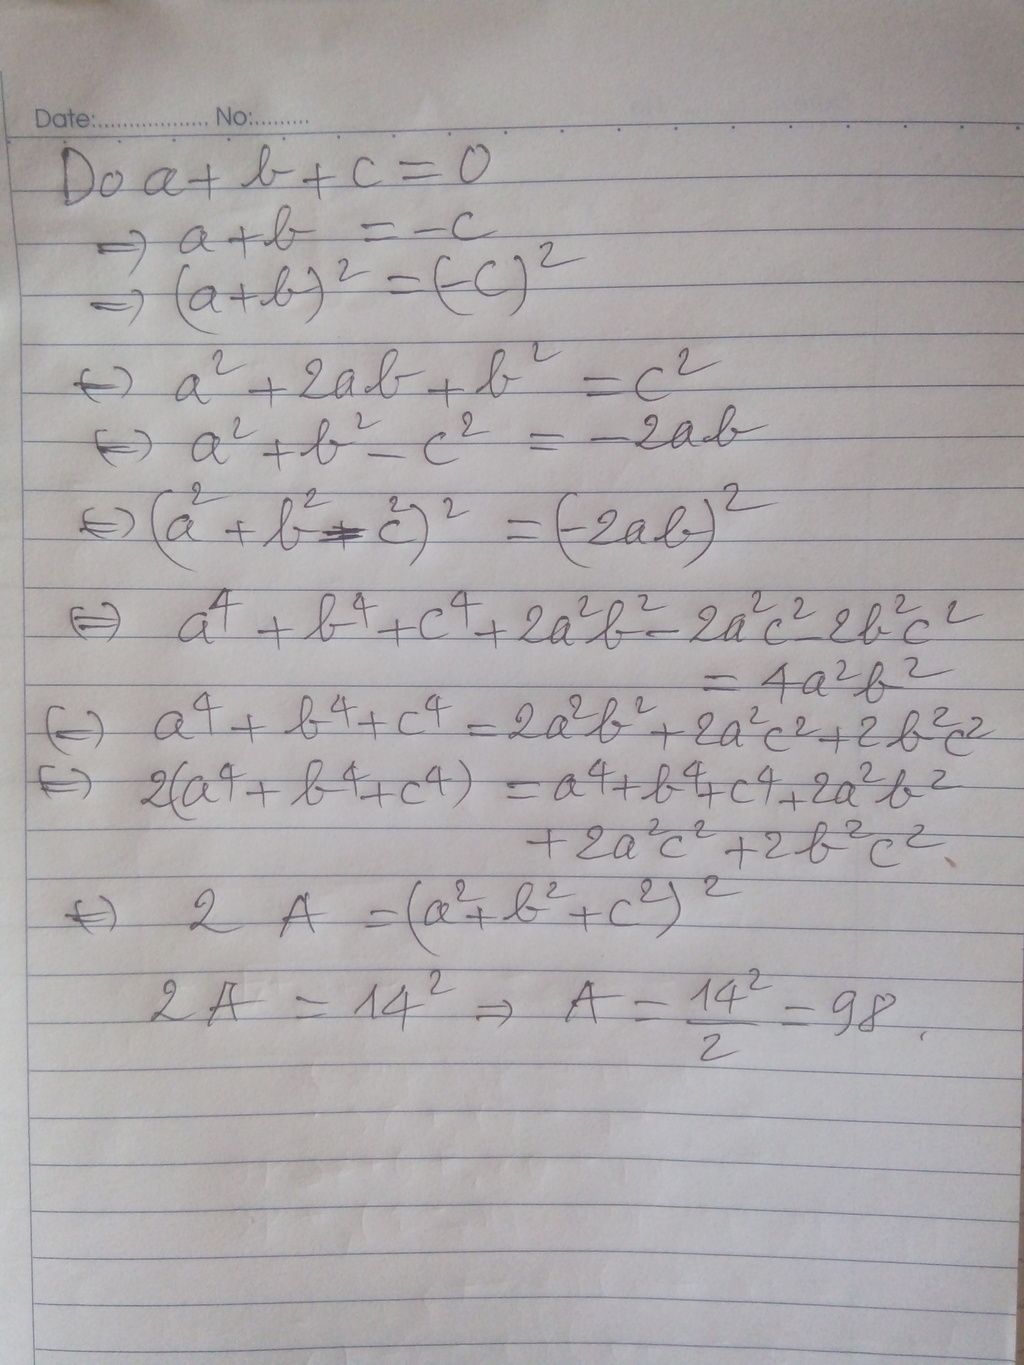 Date:................... No:.........
Do a + b + c = 0
=> a + b = -c
=> (a+b)² = (-c)²
<=> a² + 2ab + b² = c²
<=> a² + b² - c² = -2ab
<=> (a² + b² - c²)² = (-2ab)²
<=> a⁴ + b⁴ + c⁴ + 2a²b² - 2a²c² - 2b²c²
= 4a²b²
<=> a⁴ + b⁴ + c⁴ = 2a²b² + 2a²c² + 2b²c²
<=> 2(a⁴ + b⁴ + c⁴) = a⁴ + b⁴ + c⁴ + 2a²b²
+ 2a²c² + 2b²c².
<=> 2 A = (a² + b² + c²)²
2A = 14² => A = 14²/2 = 98.